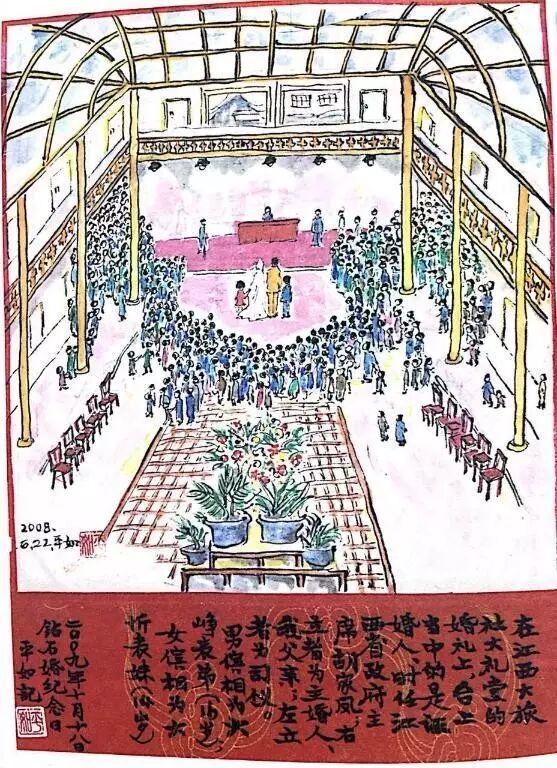 2008.
6.22.平如
在江西大旅
社大礼堂的
婚礼上,台上
当中的是证
婚人、时任江
西省政府主
席胡家凤,右
立者为主婚人、
我父亲;左立
者为司仪。
男傧相为
峥表弟(16岁),
女傧相为
忻表妹(14岁)
二〇〇九年十月十八日
钻石婚纪念日
平如记